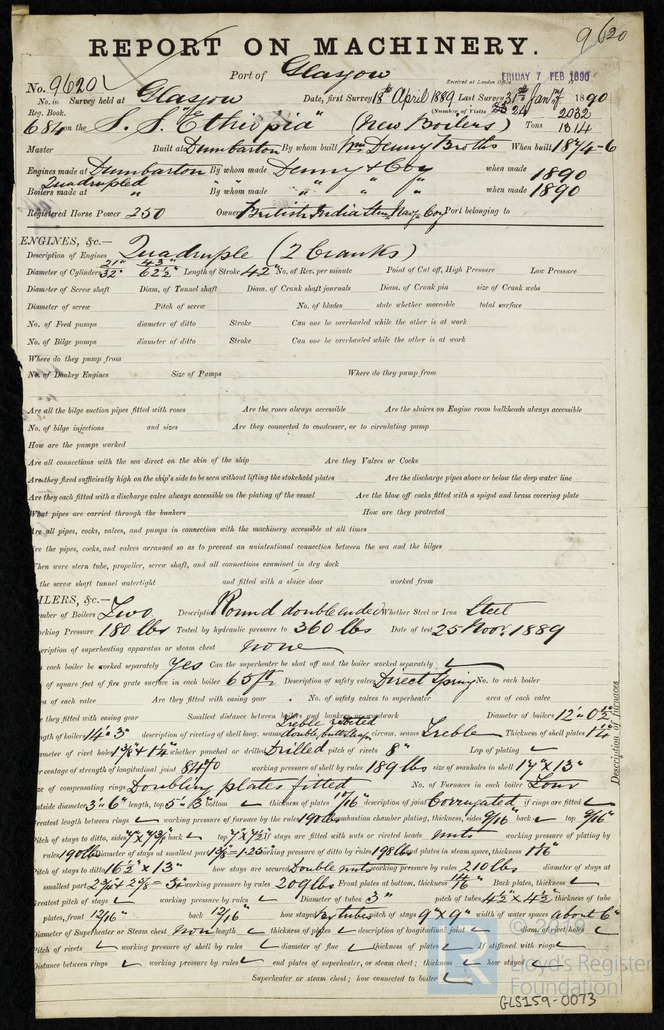 9620
REPORT ON MACHINERY.
Port of Glasgow
Received at London Office FRIDAY 7 FEB 1890
No. 9620
No. in Survey held at Glasgow Date, first Survey 18th April 1889 Last Survey 31st Jany 1890
Reg. Book. (Number of Visits 24)
684 on the S.S. "Ethiopia" (New Boilers) Tons 2032
1314
Master Built at Dumbarton By whom built Wm Denny & Bros When built 1874-6
Engines made at Dumbarton By whom made Denny & Coy when made 1890
Quadrupled
Boilers made at " By whom made " " " when made 1890
Registered Horse Power 250 Owner British India Stm Navgn Coy Port belonging to
ENGINES, &c.—
Description of Engines Quadruple (2 Cranks)
21" 43"
Diameter of Cylinders 32" 62½" Length of Stroke 42" No. of Rev. per minute Point of Cut off, High Pressure Low Pressure
Diameter of Screw shaft Diam. of Tunnel shaft Diam. of Crank shaft journals Diam. of Crank pin size of Crank webs
Diameter of screw Pitch of screw No. of blades state whether moveable total surface
No. of Feed pumps diameter of ditto Stroke Can one be overhauled while the other is at work
No. of Bilge pumps diameter of ditto Stroke Can one be overhauled while the other is at work
Where do they pump from
No. of Donkey Engines Size of Pumps Where do they pump from
Are all the bilge suction pipes fitted with roses Are the roses always accessible Are the sluices on Engine room bulkheads always accessible
No. of bilge injections and sizes Are they connected to condenser, or to circulating pump
How are the pumps worked
Are all connections with the sea direct on the skin of the ship Are they Valves or Cocks
Are they fixed sufficiently high on the ship's side to be seen without lifting the stokehold plates Are the discharge pipes above or below the deep water line
Are they each fitted with a discharge valve always accessible on the plating of the vessel Are the blow off cocks fitted with a spigot and brass covering plate
What pipes are carried through the bunkers How are they protected
Are all pipes, cocks, valves, and pumps in connection with the machinery accessible at all times
re the pipes, cocks, and valves arranged so as to prevent an unintentional connection between the sea and the bilges
hen were stern tube, propeller, screw shaft, and all connections examined in dry dock
the screw shaft tunnel watertight and fitted with a sluice door worked from
ILERS, &c.—
mber of Boilers Two Description Round double ended Whether Steel or Iron Steel
orking Pressure 180 lbs Tested by hydraulic pressure to 360 lbs Date of test 25 Novr. 1889
cription of superheating apparatus or steam chest none
each boiler be worked separately Yes Can the superheater be shut off and the boiler worked separately ✓
of square feet of fire grate surface in each boiler 65 ft Description of safety valves Direct Spring No. to each boiler
a of each valve Are they fitted with easing gear No. of safety valves to superheater area of each valve
e they fitted with easing gear Smallest distance between boilers and bunkers or woodwork Diameter of boilers 12'-0½"
ngth of boilers 14'-3" description of riveting of shell long. seams Treble riveted double butt straps circum. seams Treble Thickness of shell plates 1¼"
ameter of rivet holes 1⅜" & 1¼" whether punched or drilled Drilled pitch of rivets 8" Lap of plating ✓
rcentage of strength of longitudinal joint 84% working pressure of shell by rules 189 lbs size of manholes in shell 17" x 13"
ze of compensating rings Doubling plates fitted No. of Furnaces in each boiler Four
utside diameter 3'-6" length, top 5'-3" bottom ✓ thickness of plates 17/16" description of joint Corrugated if rings are fitted ✓
reatest length between rings ✓ working pressure of furnace by the rules 190 lbs combustion chamber plating, thickness, sides 9/16" back ✓ top 9/16"
Pitch of stays to ditto, sides 7" x 7⅜" back ✓ top 7" x 7½" If stays are fitted with nuts or riveted heads nuts working pressure of plating by
rules 190 lbs Diameter of stays at smallest part working pressure of ditto by rules 198 lbs end plates in steam space, thickness 1 1/16"
Pitch of stays to ditto 16½" x 13" how stays are secured Double nuts working pressure by rules 210 lbs diameter of stays at
smallest part working pressure by rules 209 lbs Front plates at bottom, thickness Back plates, thickness ✓
Greatest pitch of stays ✓ working pressure by rules ✓ Diameter of tubes 3" pitch of tubes 4½" x 4½" thickness of tube
plates, front 12/16" back 12/16" how stayed By tubes pitch of stays 9" x 9" width of water spaces About 6"
Diameter of Superheater or Steam chest none length ✓ thickness of plates ✓ description of longitudinal joint ✓ diam. of rivet holes ✓
Pitch of rivets ✓ working pressure of shell by rules ✓ diameter of flue ✓ thickness of plates ✓ If stiffened with rings ✓
Distance between rings ✓ working pressure by rules ✓ end plates of superheater, or steam chest; thickness ✓ how stayed ✓
Superheater or steam chest; how connected to boiler ✓
Description of Furnaces
Lloyd's Register
Foundation
GLS159-0073